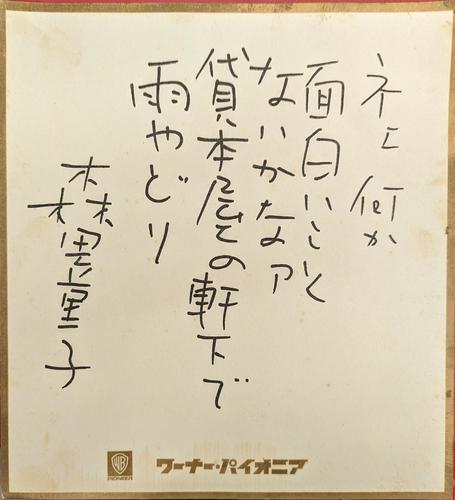 ネェ何か
面白いこと
ないかなァ
貸本屋の軒下で
雨やどり
森男童子
WB
PIONEER
ワーナー・パイオニア